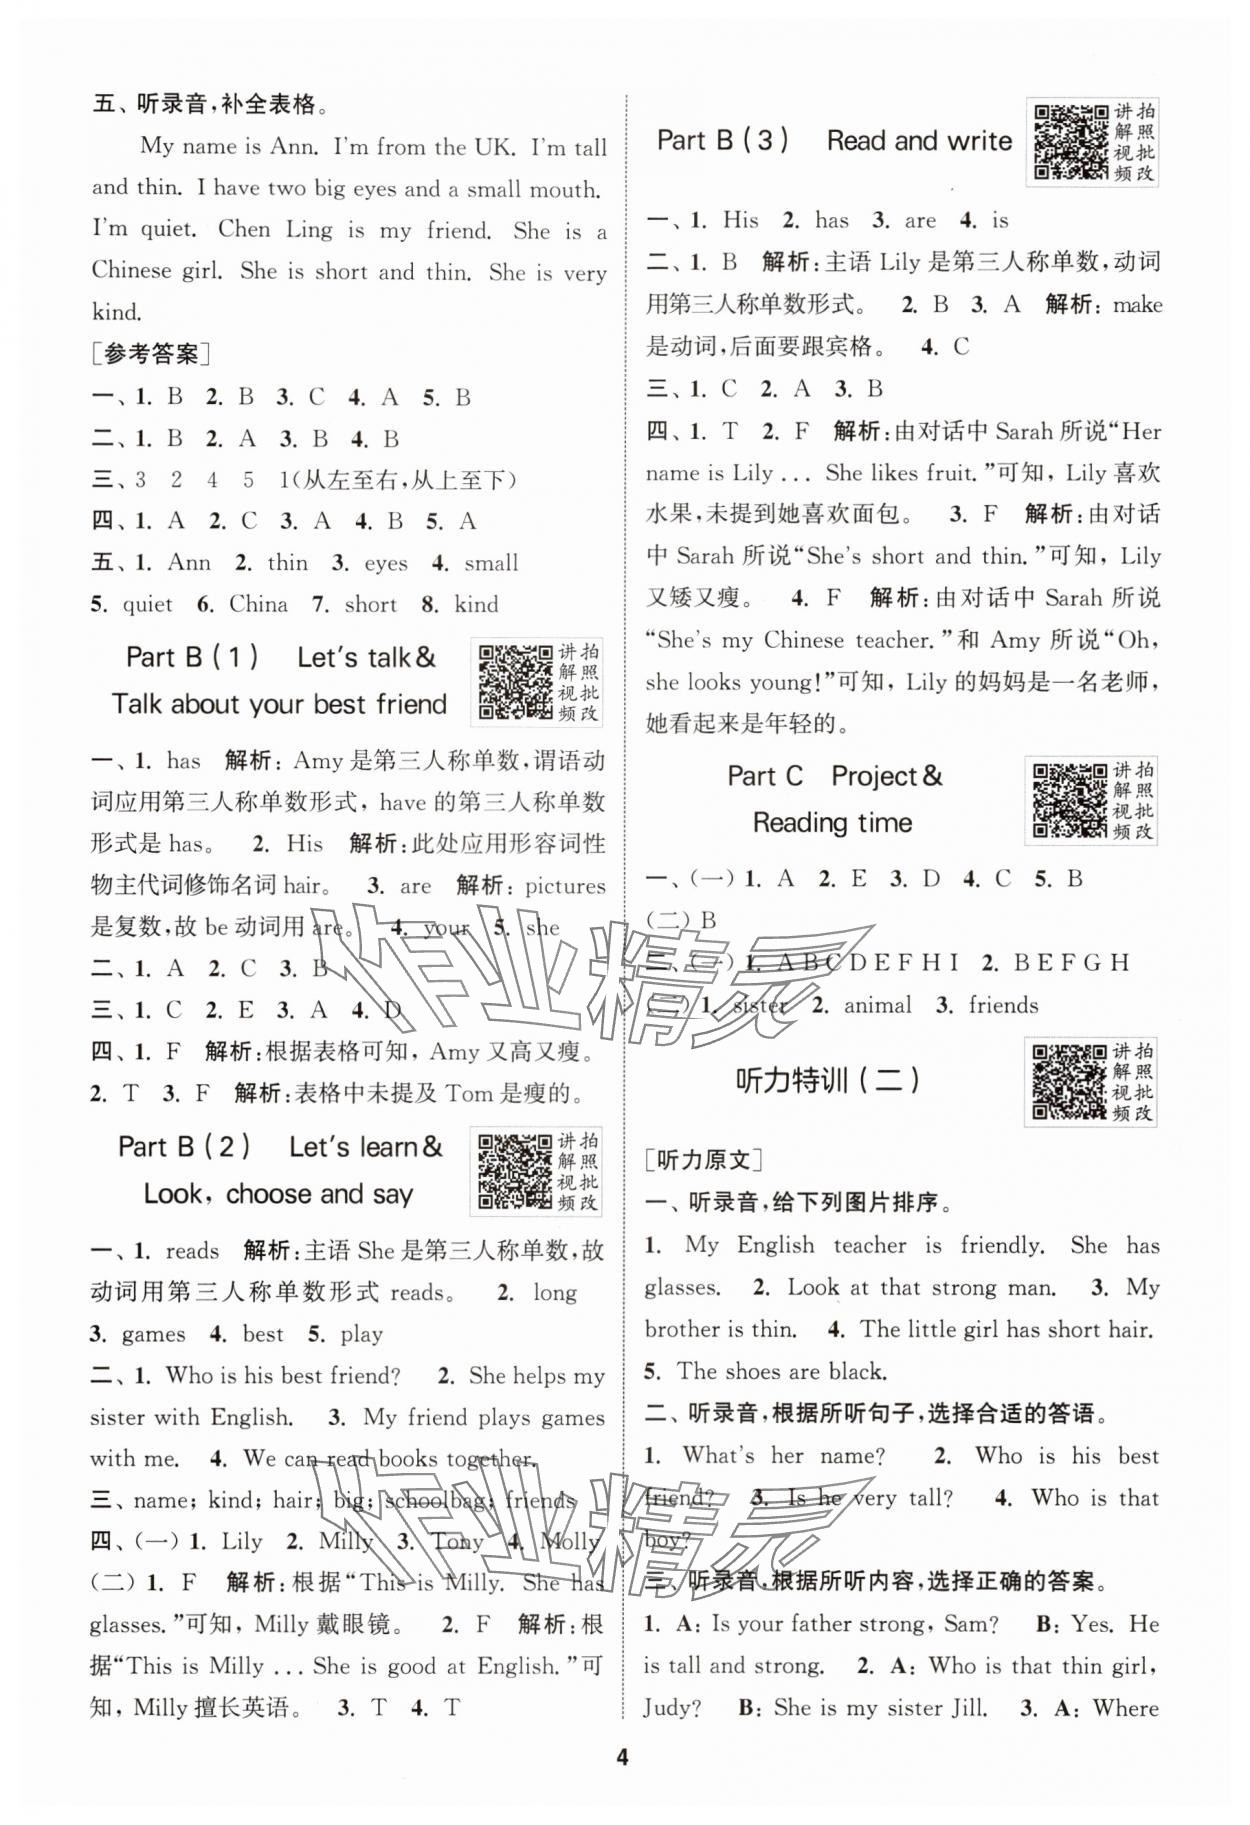 五、听录音,补全表格。
My name is Ann. I'm from the UK. I'm tall
and thin. I have two big eyes and a small mouth.
I'm quiet. Chen Ling is my friend. She is a
Chinese girl. She is short and thin. She is very
kind.
[参考答案]
一、1. B 2. B 3. C 4. A 5. B
二、1. B 2. A 3. B 4. B
三、3 2 4 5 1(从左至右,从上至下)
四、1. A 2. C 3. A 4. B 5. A
五、1. Ann 2. thin 3. eyes 4. small
5. quiet 6. China 7. short 8. kind
Part B(1) Let's talk&
Talk about your best friend
讲拍
解照
视批
频改
一、1. has 解析:Amy是第三人称单数,谓语动
词应用第三人称单数形式,have的第三人称单数
形式是has。 2. His 解析:此处应用形容词性
物主代词修饰名词hair。 3. are 解析:pictures
是复数,故be动词用are。 4. your 5. she
二、1. A 2. C 3. B
三、1. C 2. E 3. A 4. D
四、1. F 解析:根据表格可知,Amy又高又瘦。
2. T 3. F 解析:表格中未提及Tom是瘦的。
Part B(2) Let's learn&
Look, choose and say
讲拍
解照
视批
频改
一、1. reads 解析:主语She是第三人称单数,故
动词用第三人称单数形式reads。 2. long
3. games 4. best 5. play
二、1. Who is his best friend? 2. She helps my
sister with English. 3. My friend plays games
with me. 4. We can read books together.
三、name; kind; hair; big; schoolbag; friends
四、(一)1. Lily 2. Milly 3. Tony 4. Molly
(二)1. F 解析:根据“This is Milly. She has
glasses.”可知,Milly戴眼镜。 2. F 解析:根
据“This is Milly ... She is good at English.”可
知,Milly擅长英语。 3. T 4. T
Part B(3) Read and write
讲拍
解照
视批
频改
一、1. His 2. has 3. are 4. is
二、1. B 解析:主语Lily是第三人称单数,动词
用第三人称单数形式。 2. B 3. A 解析:make
是动词,后面要跟宾格。 4. C
三、1. C 2. A 3. B
四、1. T 2. F 解析:由对话中Sarah所说“Her
name is Lily ... She likes fruit.”可知,Lily喜欢
水果,未提到她喜欢面包。 3. F 解析:由对话
中Sarah所说“She's short and thin.”可知,Lily
又矮又瘦。 4. F 解析:由对话中Sarah所说
“She's my Chinese teacher.”和Amy所说“Oh,
she looks young!”可知,Lily的妈妈是一名老师,
她看起来是年轻的。
Part C Project&
Reading time
讲拍
解照
视批
频改
一、(一)1. A 2. E 3. D 4. C 5. B
(二)B
二、(一)1. A B C D E F H I 2. B E F G H
(二)1. sister 2. animal 3. friends
听力特训(二)
讲拍
解照
视批
频改
[听力原文]
一、听录音,给下列图片排序。
1. My English teacher is friendly. She has
glasses. 2. Look at that strong man. 3. My
brother is thin. 4. The little girl has short hair.
5. The shoes are black.
二、听录音,根据所听句子,选择合适的答语。
1. What's her name? 2. Who is his best
friend? 3. Is he very tall? 4. Who is that
boy?
三、听录音,根据所听内容,选择正确的答案。
1. A: Is your father strong, Sam? B: Yes. He
is tall and strong. 2. A: Who is that thin girl,
Judy? B: She is my sister Jill. 3. A: Where
4
作业精灵
作业精灵